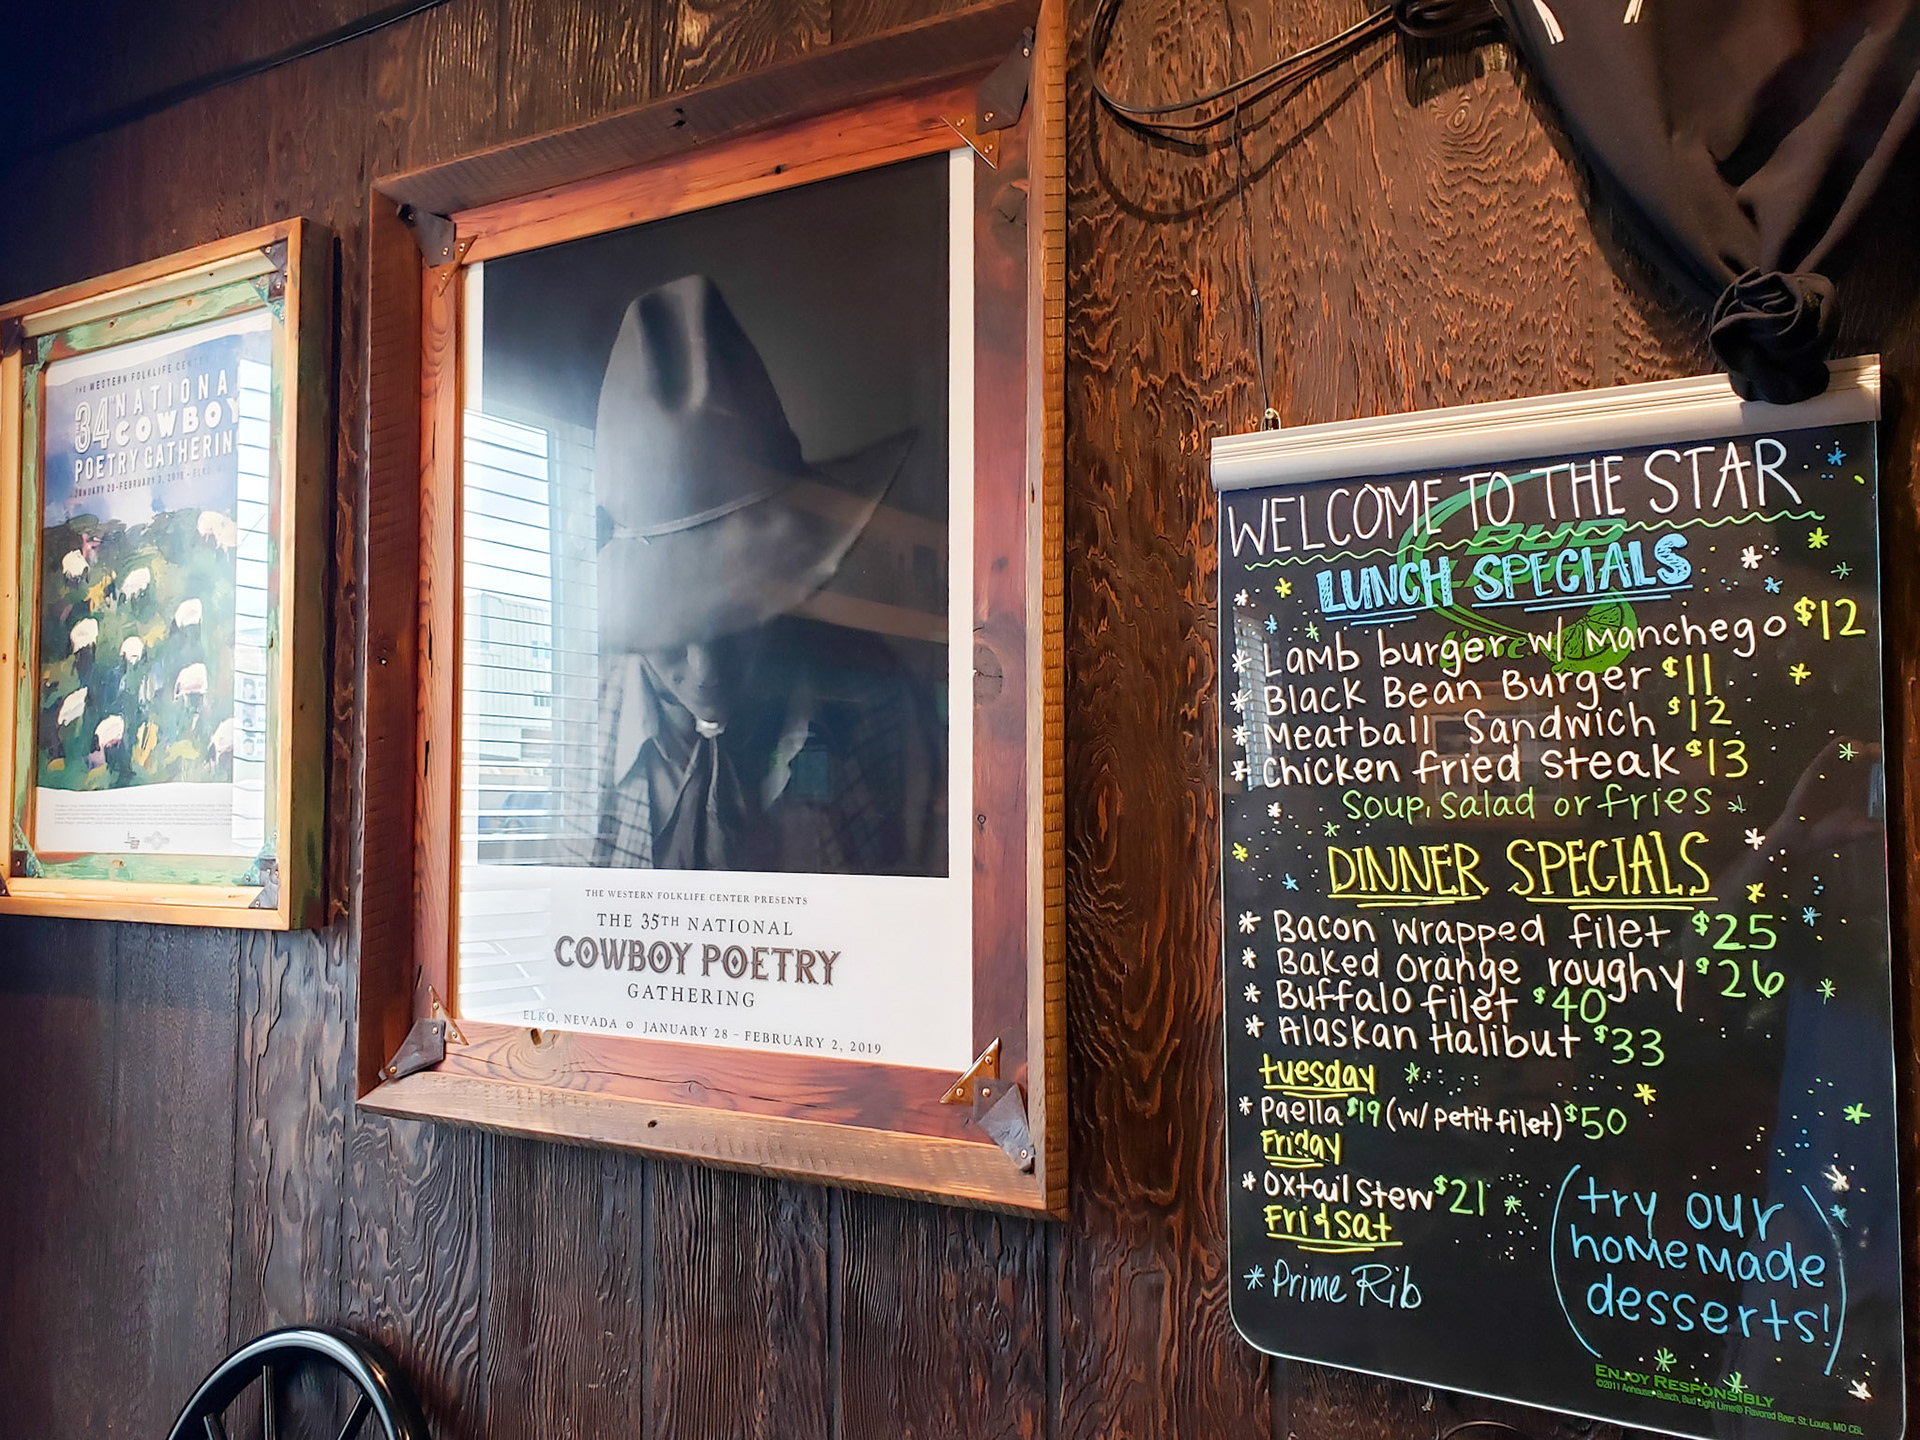 THE WESTERN FOLKLIFE
34TH NATIONAL
COWBOY
POETRY GATHERING
THE WESTERN FOLKLIFE CENTER PRESENTS
THE 35TH NATIONAL
COWBOY POETRY
GATHERING
ELKO, NEVADA JANUARY 28 - FEBRUARY 2, 2019
WELCOME TO THE STAR
LUNCH SPECIALS
* Lamb burger w/ Manchego $12
* Black Bean Burger $11
* Meatball Sandwich $12
* Chicken fried steak $13
Soup, Salad or fries
DINNER SPECIALS
* Bacon wrapped filet $25
* Baked orange roughy $26
* Buffalo filet $40
* Alaskan Halibut $33
tuesday
* paella $19 (w/ petit filet) $50
Friday
* Oxtail Stew $21
Fri & Sat
* Prime Rib
(try our
homemade
desserts!)
ENJOY RESPONSIBLY
©2011 Anheuser-Busch, Bud Light Lime® Flavored Beer, St. Louis, MO